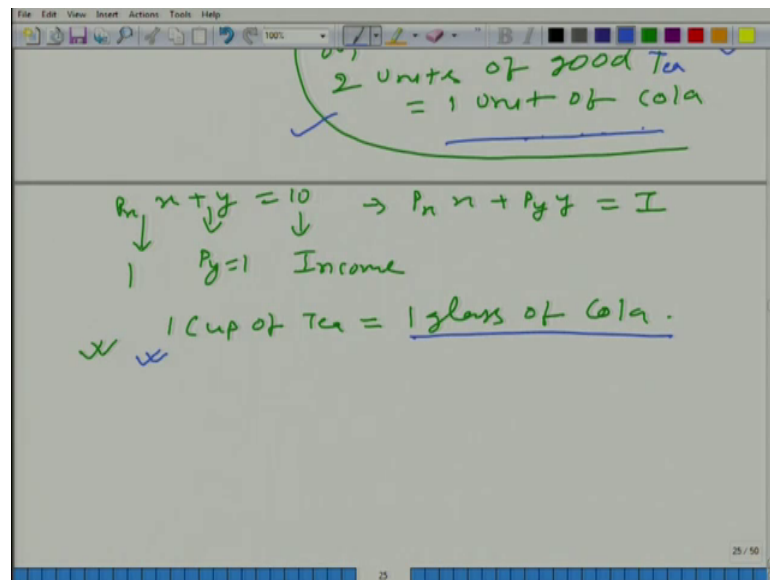 File Edit View Insert Actions Tools Help
100%
2 units of good Tea
= 1 unit of cola
Pn x + y = 10 → Pn x + Py y = I
1 Py=1 Income
1 Cup of Tea = 1 glass of Cola.
25 / 50
25